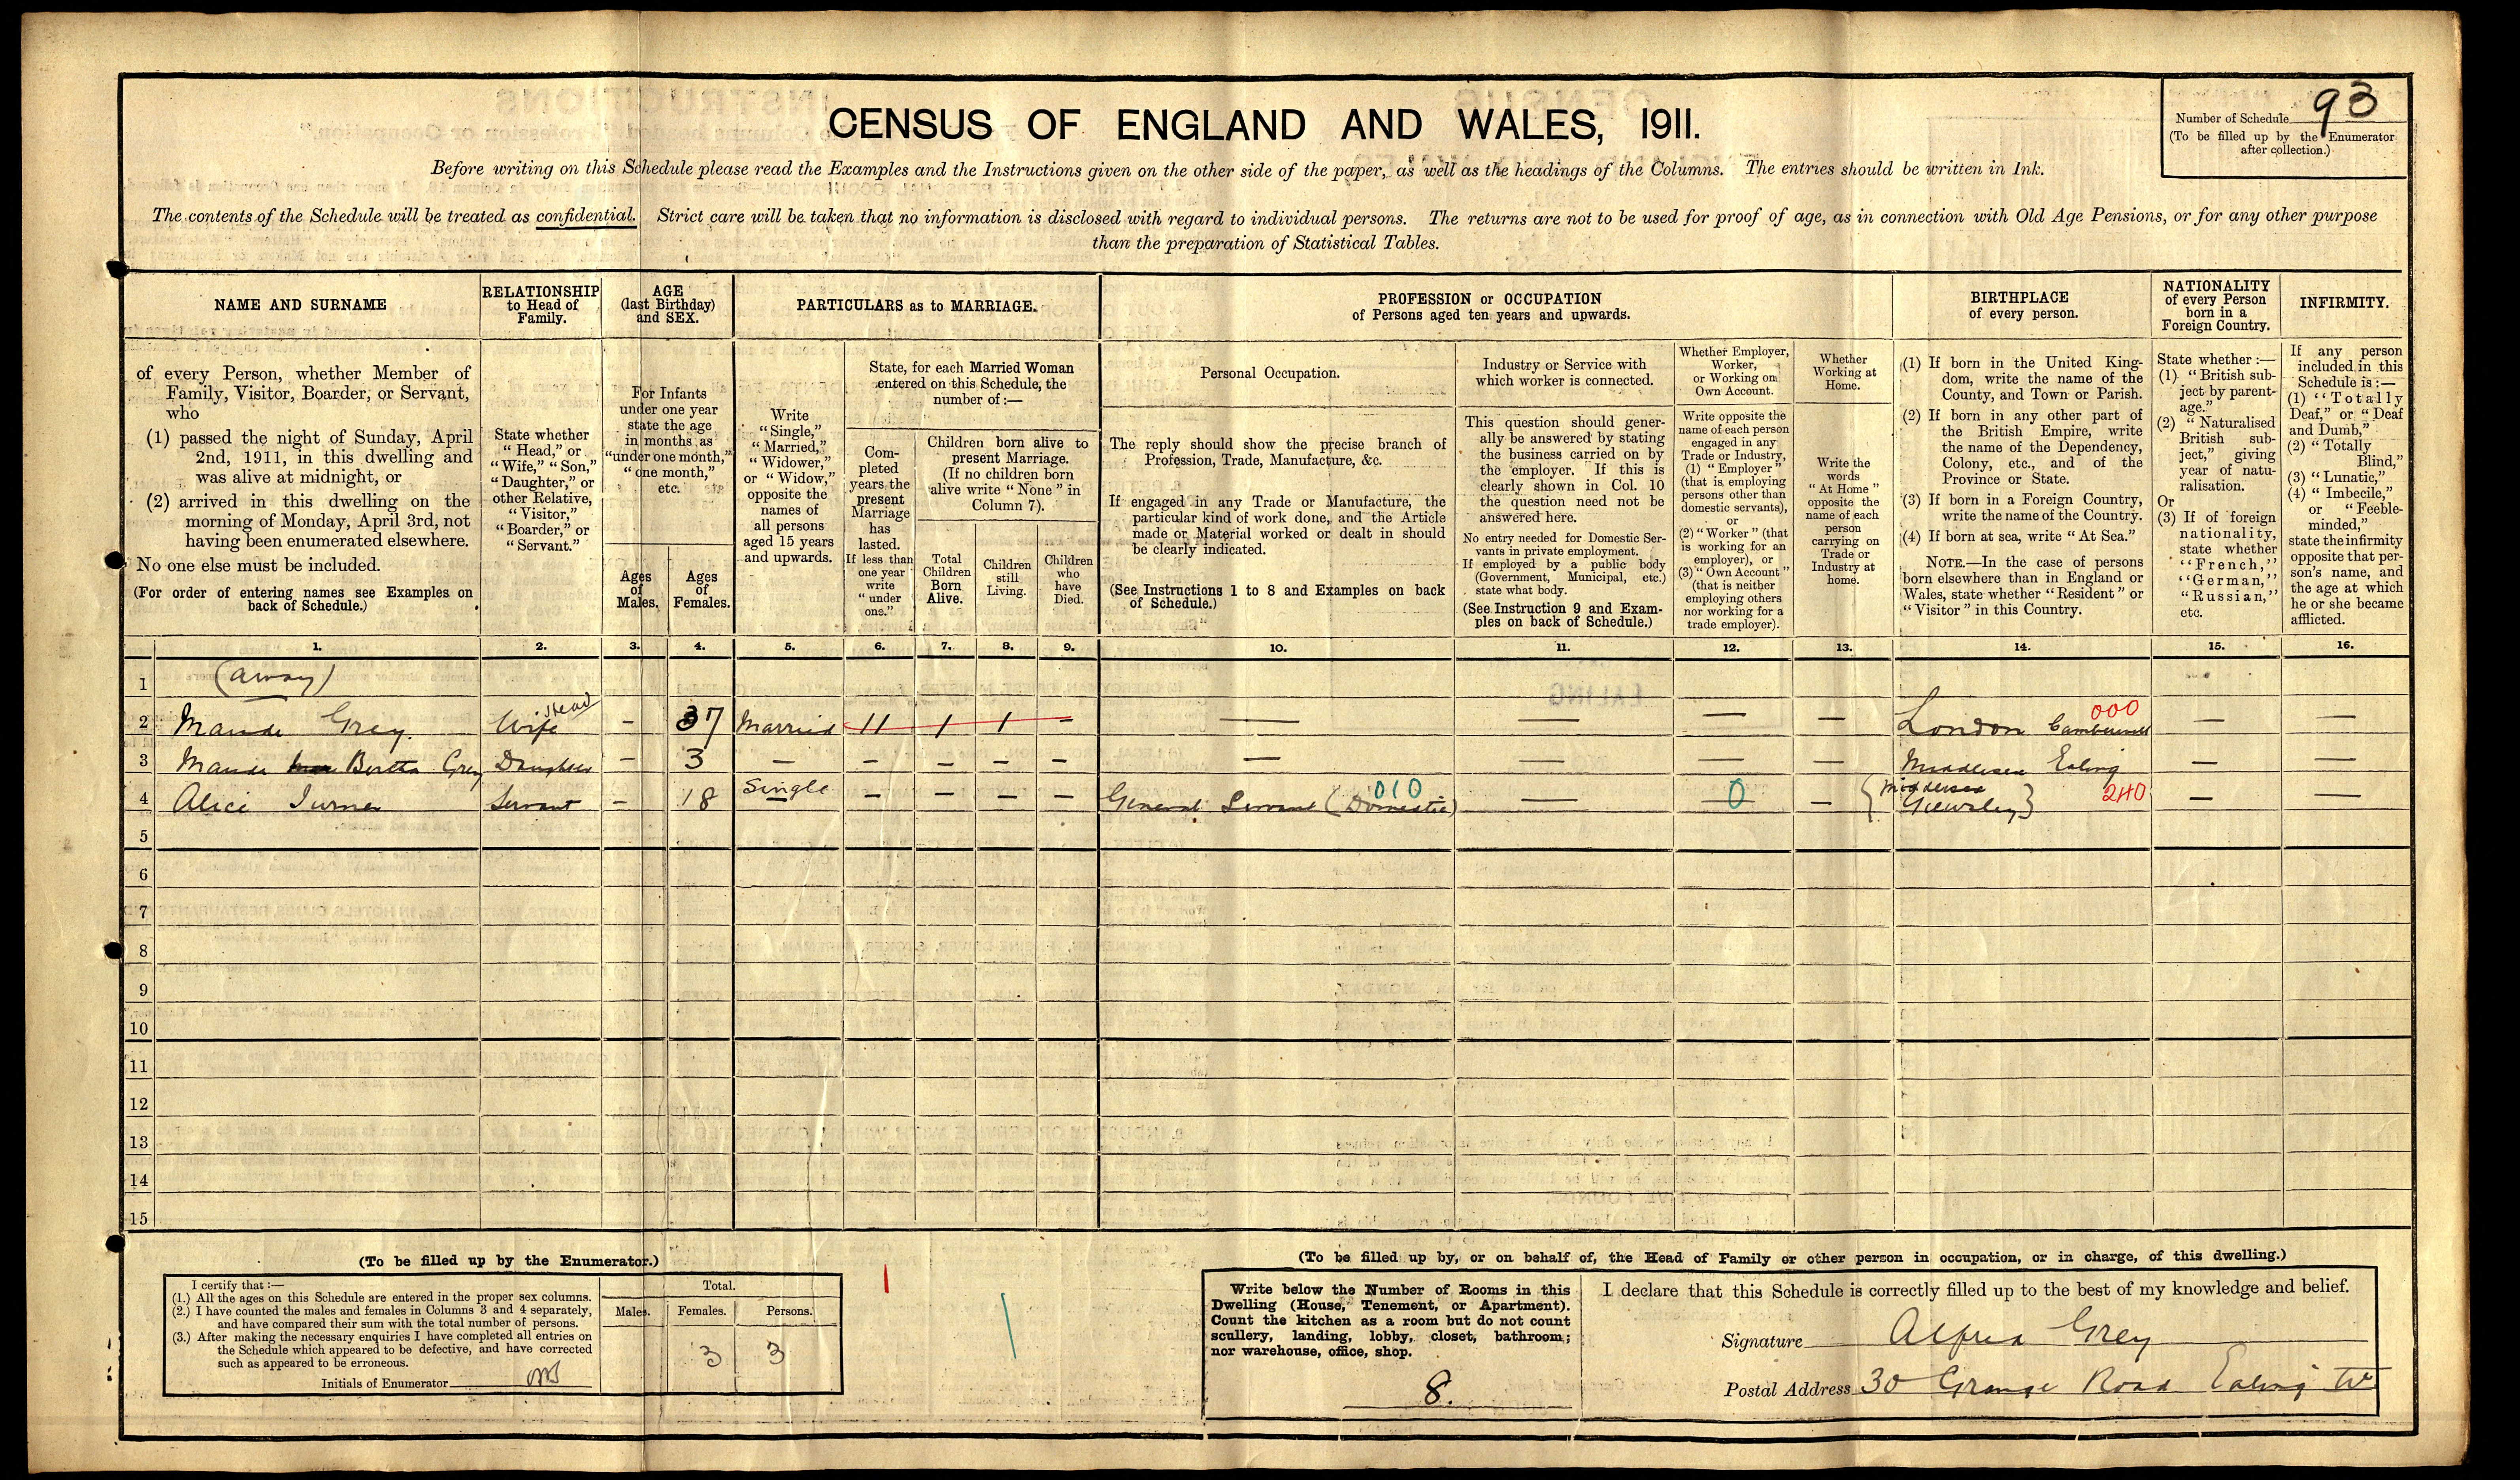 CENSUS OF ENGLAND AND WALES, 1911.
Number of Schedule 93
(To be filled up by the Enumerator
after collection.)
Before writing on this Schedule please read the Examples and the Instructions given on the other side of the paper, as well as the headings of the Columns. The entries should be written in Ink.
The contents of the Schedule will be treated as confidential. Strict care will be taken that no information is disclosed with regard to individual persons. The returns are not to be used for proof of age, as in connection with Old Age Pensions, or for any other purpose
than the preparation of Statistical Tables.
NAME AND SURNAME
of every Person, whether Member of
Family, Visitor, Boarder, or Servant,
who
(1) passed the night of Sunday, April
2nd, 1911, in this dwelling and
was alive at midnight, or
(2) arrived in this dwelling on the
morning of Monday, April 3rd, not
having been enumerated elsewhere.
No one else must be included.
(For order of entering names see Examples on
back of Schedule.)
RELATIONSHIP
to Head of
Family.
State whether
"Head," or
"Wife," "Son,"
"Daughter," or
other Relative,
"Visitor,"
"Boarder," or
"Servant."
AGE
(last Birthday)
and SEX.
For Infants
under one year
state the age
in months as
"under one month,"
"one month,"
etc.
Ages
of
Males.
Ages
of
Females.
PARTICULARS as to MARRIAGE.
Write
"Single,"
"Married,"
"Widower,"
or "Widow,"
opposite the
names of
all persons
aged 15 years
and upwards.
State, for each Married Woman
entered on this Schedule, the
number of:—
Com-
pleted
years the
present
Marriage
has
lasted.
If less than
one year
write
"under
one."
Children born alive to
present Marriage.
(If no children born
alive write "None" in
Column 7).
Total
Children
Born
Alive.
Children
still
Living.
Children
who
have
Died.
PROFESSION or OCCUPATION
of Persons aged ten years and upwards.
Personal Occupation.
The reply should show the precise branch of
Profession, Trade, Manufacture, &c.
If engaged in any Trade or Manufacture, the
particular kind of work done, and the Article
made or Material worked or dealt in should
be clearly indicated.
(See Instructions 1 to 8 and Examples on back
of Schedule.)
Industry or Service with
which worker is connected.
This question should gener-
ally be answered by stating
the business carried on by
the employer. If this is
clearly shown in Col. 10
the question need not be
answered here.
No entry needed for Domestic Ser-
vants in private employment.
If employed by a public body
(Government, Municipal, etc.)
state what body.
(See Instruction 9 and Exam-
ples on back of Schedule.)
Whether Employer,
Worker,
or Working on
Own Account.
Write opposite the
name of each person
engaged in any
Trade or Industry,
(1) "Employer"
(that is employing
persons other than
domestic servants),
or
(2) "Worker" (that
is working for an
employer), or
(3) "Own Account"
(that is neither
employing others
nor working for a
trade employer).
Whether
Working at
Home.
Write the
words
"At Home"
opposite the
name of each
person
carrying on
Trade or
Industry at
home.
BIRTHPLACE
of every person.
(1) If born in the United King-
dom, write the name of the
County, and Town or Parish.
(2) If born in any other part of
the British Empire, write
the name of the Dependency,
Colony, etc., and of the
Province or State.
(3) If born in a Foreign Country,
write the name of the Country.
(4) If born at sea, write "At Sea."
NOTE.—In the case of persons
born elsewhere than in England or
Wales, state whether "Resident" or
"Visitor" in this Country.
NATIONALITY
of every Person
born in a
Foreign Country.
State whether:—
(1) "British sub-
ject by parent-
age."
(2) "Naturalised
British sub-
ject," giving
year of natu-
ralisation.
Or
(3) If of foreign
nationality,
state whether
"French,"
"German,"
"Russian,"
etc.
INFIRMITY.
If any person
included in this
Schedule is:—
(1) "Totally
Deaf," or "Deaf
and Dumb,"
(2) "Totally
Blind,"
(3) "Lunatic,"
(4) "Imbecile,"
or "Feeble-
minded,"
state the infirmity
opposite that per-
son's name, and
the age at which
he or she became
afflicted.
1. 2. 3. 4. 5. 6. 7. 8. 9. 10. 11. 12. 13. 14. 15. 16.
1 (away)
2 Maude Grey. Wife Head – 37 Married 11 1 1 – — — — — London Camberwell 000 — —
3 Maude Bertha Grey Daughter – 3 – – – – – — — — — Middlesex Ealing — —
4 Alice Turner Servant – 18 Single – – – – General Servant (Domestic) 010 — 0 — {Middlesex
} 240 — —
5
6
7
8
9
10
11
12
13
14
15
(To be filled up by the Enumerator.)
I certify that:—
(1.) All the ages on this Schedule are entered in the proper sex columns.
(2.) I have counted the males and females in Columns 3 and 4 separately,
and have compared their sum with the total number of persons.
(3.) After making the necessary enquiries I have completed all entries on
the Schedule which appeared to be defective, and have corrected
such as appeared to be erroneous.
Initials of Enumerator
Total.
Males. Females. Persons.
3 3
(To be filled up by, or on behalf of, the Head of Family or other person in occupation, or in charge, of this dwelling.)
Write below the Number of Rooms in this
Dwelling (House, Tenement, or Apartment).
Count the kitchen as a room but do not count
scullery, landing, lobby, closet, bathroom;
nor warehouse, office, shop.
8.
I declare that this Schedule is correctly filled up to the best of my knowledge and belief.
Signature Alfred Grey
Postal Address 30 Grange Road Ealing W